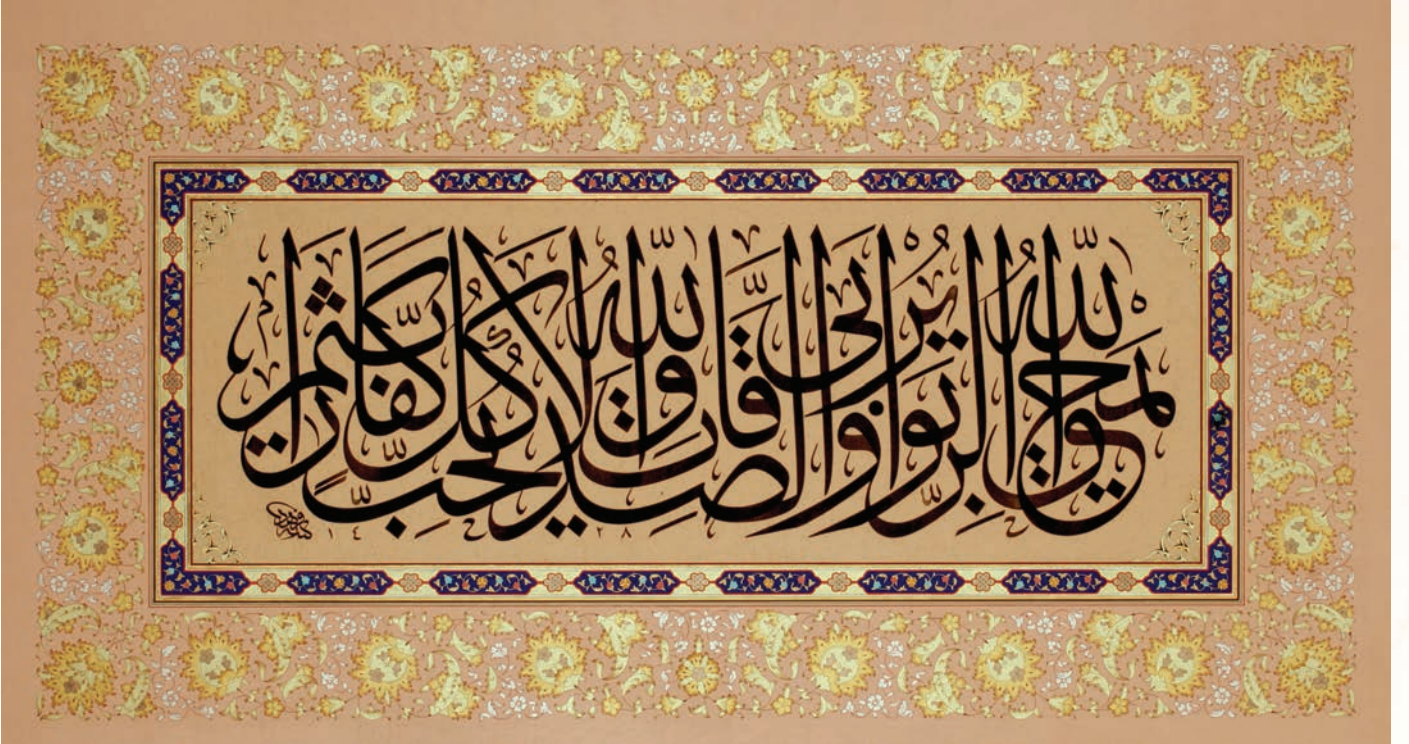 يَمْحَقُ اللّٰهُ الرِّبٰوا وَيُرْبِي الصَّدَقَاتِ وَاللّٰهُ لَا يُحِبُّ كُلَّ كَفَّارٍ أَثِيمٍ
١٤٢٨